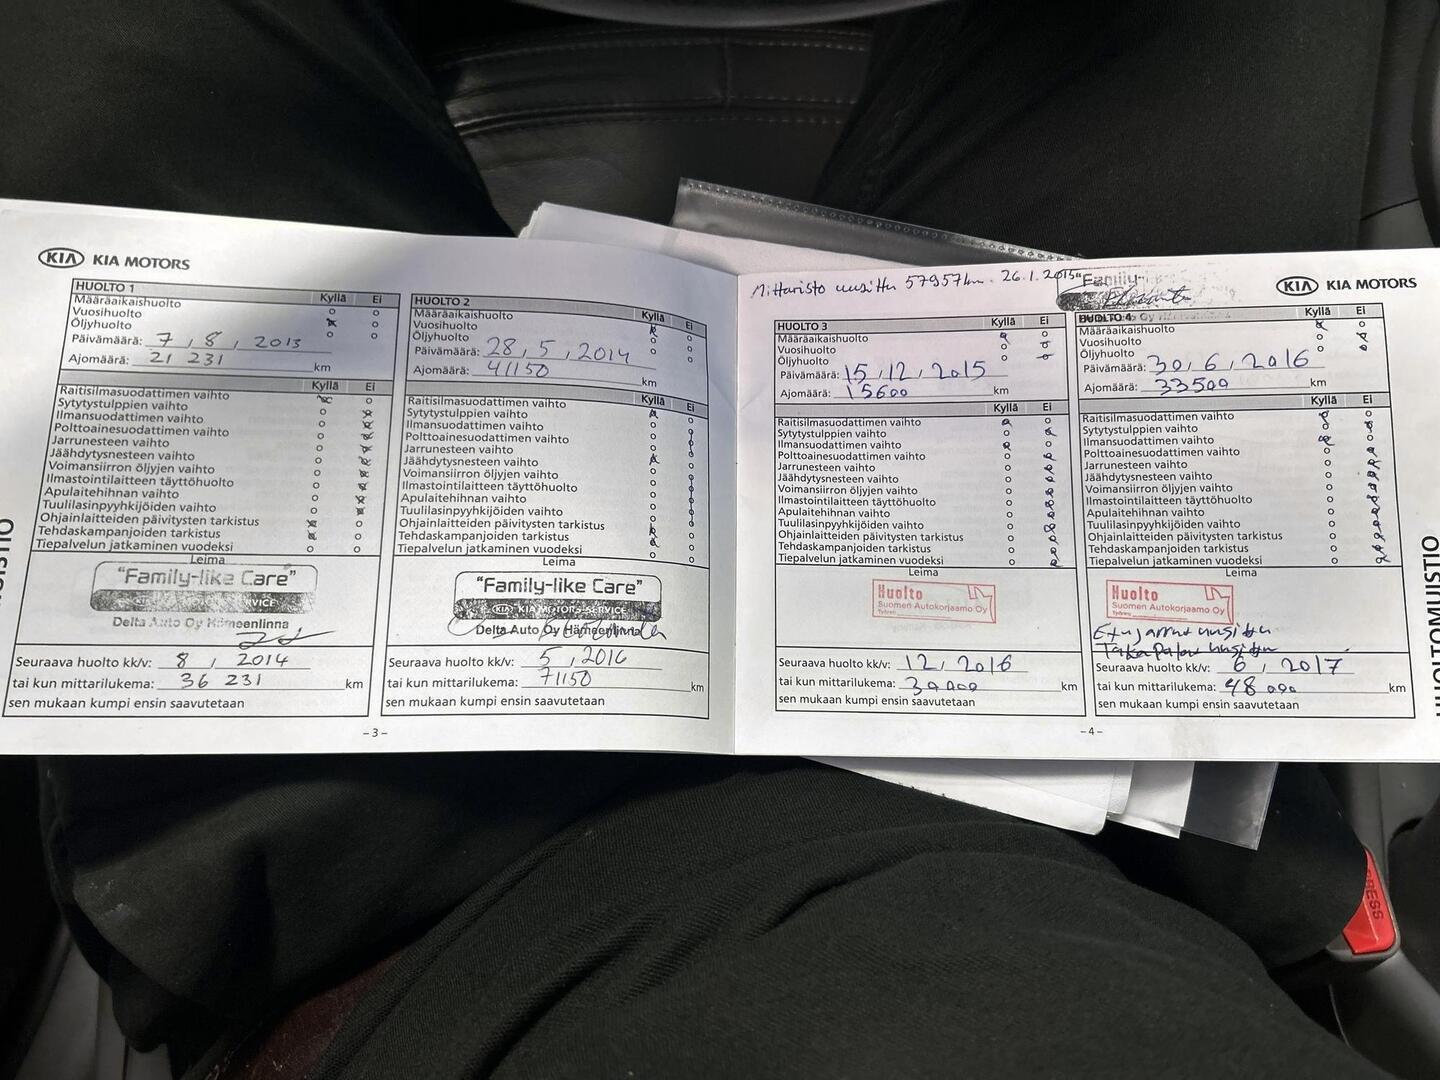 KIA KIA MOTORS
HUOLTO 1 Kyllä Ei
Määräaikaishuolto
Vuosihuolto
Öljyhuolto
Päivämäärä: 7, 8, 2013
Ajomäärä: 21 231 km
Kyllä Ei
Raitisilmasuodattimen vaihto
Sytytystulppien vaihto
Ilmansuodattimen vaihto
Polttoainesuodattimen vaihto
Jarrunesteen vaihto
Jäähdytysnesteen vaihto
Voimansiirron öljyjen vaihto
Ilmastointilaitteen täyttöhuolto
Apulaitehihnan vaihto
Tuulilasinpyyhkijöiden vaihto
Ohjainlaitteiden päivitysten tarkistus
Tehdaskampanjoiden tarkistus
Tiepalvelun jatkaminen vuodeksi
Leima
"Family-like Care"
SERVICE
Delta Auto Oy Hämeenlinna
Seuraava huolto kk/v: 8, 2014
tai kun mittarilukema: 36 231 km
sen mukaan kumpi ensin saavutetaan
HUOLTO 2 Kyllä Ei
Määräaikaishuolto
Vuosihuolto
Öljyhuolto
Päivämäärä: 28, 5, 2014
Ajomäärä: 41150 km
Kyllä Ei
Raitisilmasuodattimen vaihto
Sytytystulppien vaihto
Ilmansuodattimen vaihto
Polttoainesuodattimen vaihto
Jarrunesteen vaihto
Jäähdytysnesteen vaihto
Voimansiirron öljyjen vaihto
Ilmastointilaitteen täyttöhuolto
Apulaitehihnan vaihto
Tuulilasinpyyhkijöiden vaihto
Ohjainlaitteiden päivitysten tarkistus
Tehdaskampanjoiden tarkistus
Tiepalvelun jatkaminen vuodeksi
Leima
"Family-like Care"
KIA KIA MOTORS SERVICE
Delta Auto Oy Hämeenlinna
Seuraava huolto kk/v: 5, 2016
tai kun mittarilukema: 71150 km
sen mukaan kumpi ensin saavutetaan
- 3 -
Mittaristo uusittu 57957km. 26.1.2015
"Family-
KIA KIA MOTORS
HUOLTO 3 Kyllä Ei
Määräaikaishuolto
Vuosihuolto
Öljyhuolto
Päivämäärä: 15, 12, 2015
Ajomäärä: 15600 km
Kyllä Ei
Raitisilmasuodattimen vaihto
Sytytystulppien vaihto
Ilmansuodattimen vaihto
Polttoainesuodattimen vaihto
Jarrunesteen vaihto
Jäähdytysnesteen vaihto
Voimansiirron öljyjen vaihto
Ilmastointilaitteen täyttöhuolto
Apulaitehihnan vaihto
Tuulilasinpyyhkijöiden vaihto
Ohjainlaitteiden päivitysten tarkistus
Tehdaskampanjoiden tarkistus
Tiepalvelun jatkaminen vuodeksi
Leima
Huolto
Suomen Autokorjaamo Oy
Seuraava huolto kk/v: 12, 2016
tai kun mittarilukema: 30000 km
sen mukaan kumpi ensin saavutetaan
HUOLTO 4 Kyllä Ei
Määräaikaishuolto
Vuosihuolto
Öljyhuolto
Päivämäärä: 30, 6, 2016
Ajomäärä: 33500 km
Kyllä Ei
Raitisilmasuodattimen vaihto
Sytytystulppien vaihto
Ilmansuodattimen vaihto
Polttoainesuodattimen vaihto
Jarrunesteen vaihto
Jäähdytysnesteen vaihto
Voimansiirron öljyjen vaihto
Ilmastointilaitteen täyttöhuolto
Apulaitehihnan vaihto
Tuulilasinpyyhkijöiden vaihto
Ohjainlaitteiden päivitysten tarkistus
Tehdaskampanjoiden tarkistus
Tiepalvelun jatkaminen vuodeksi
Leima
Huolto
Suomen Autokorjaamo Oy
Etujarrut uusittu
Takapalat uusittu
Seuraava huolto kk/v: 6, 2017
tai kun mittarilukema: 48000 km
sen mukaan kumpi ensin saavutetaan
- 4 -
HUOLTOMUISTIO
PRESS